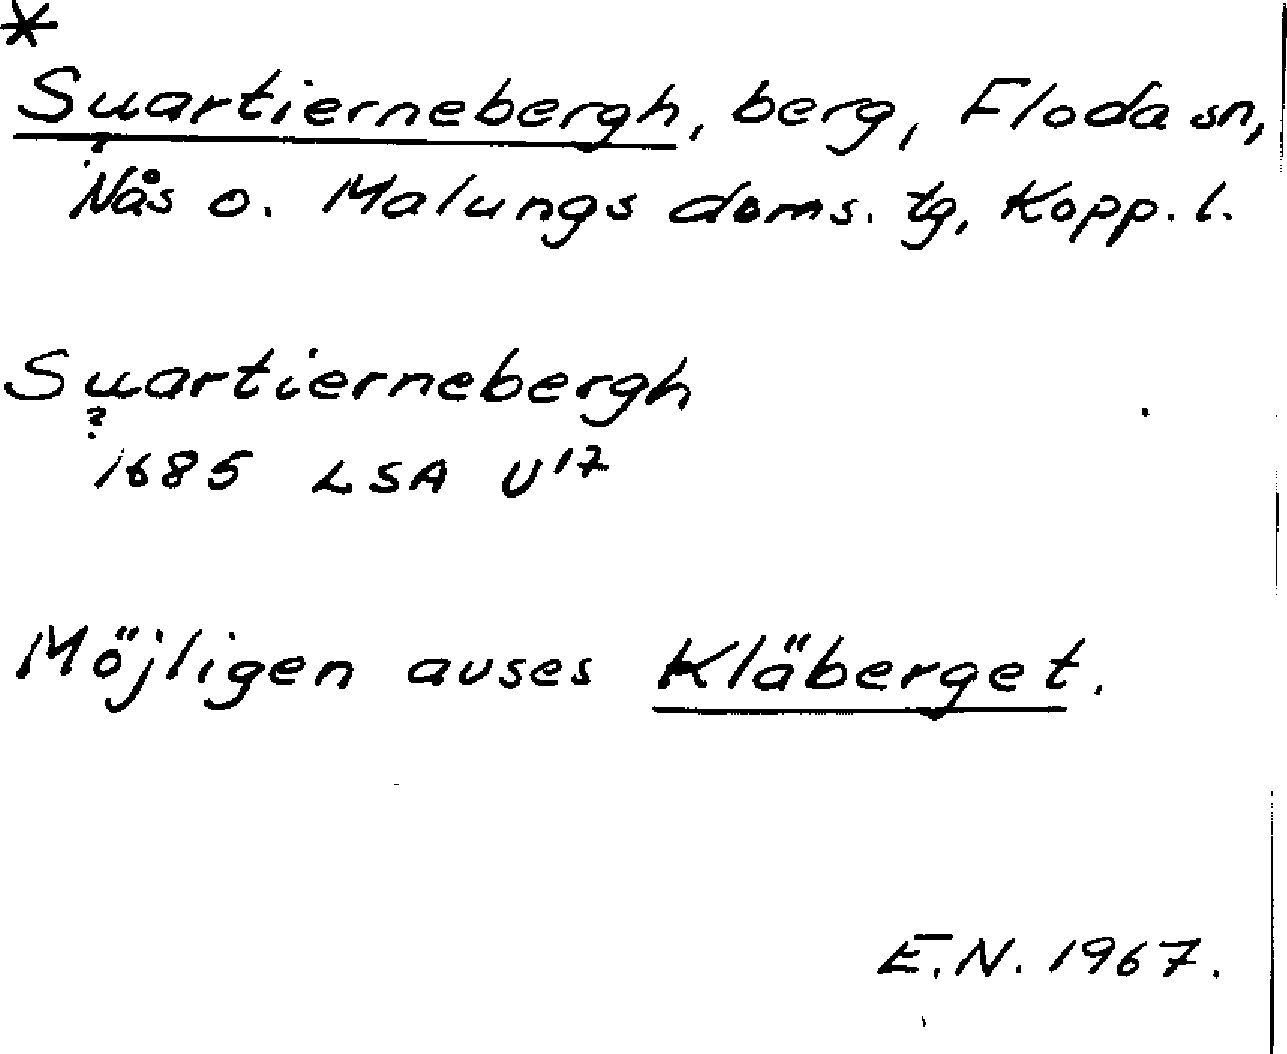 *
Suartiernebergh, berg, Floda sn,
?
Nås o. Malungs doms. tg, Kopp. l.
Suartiernebergh
?
1685 LSA U17
Möjligen avses Kläberget.
E.N. 1967.